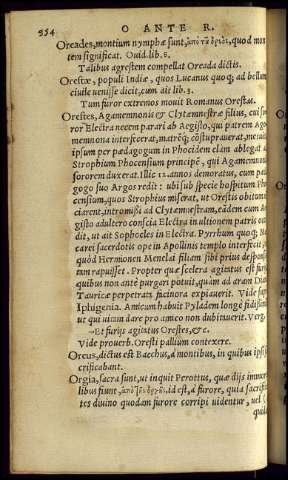 554 O ANTE R.
Oreades, montium nymphæ sunt, ἀπὸ τῦ ὄρεος, quod mon
tem significat. Ouid. lib. 8.
Talibus agrestem compellat Oreada dictis.
Orestæ, populi Indiæ, quos Lucanus quoq; ad bellum
ciuile uenisse dicit, cum ait lib. 3.
Tum furor extremos mouit Romanus Orestas.
Orestes, Agamemnonis & Clytæmnestræ filius, cùi so
ror Electra necem parari ab Aegisto, qui patrem Aga
memnona interfecerat, matrēq́; cōstuprauerat,
ipsum per pædagogum in Phocidem clam ablegat a
Strophium Phocensium principē, qui Agamemnonis
sororem duxerat. Illic 12. annos demoratus, cum pæda
gogo suo Argos redit: ubi sub specie hospitum Pho
censium, quos Strophius miserat, ut Orestis obitum
ciarent, intromissi ad Clytæmnestram, eādem cum Ae
gisto adultero conscia Electra in ultionem patris occi
dit, ut ait Sophocles in Electra. Pyrrhum quoq;
carei sacerdotis ope in Apollinis templo interfecit
quòd Hermionen Menelai filiam sibi prius desponsa
tam rapuisset. Propter quæ scelera agitatus est furijs
quibus non ante purgari potuit, quàm ad aram Dianæ
Tauricæ perpetrata facinora expiauerit. Vide
Iphigenia. Amicum habuit Pyladem longè fidissi
ut qui uitam dare pro amico non dubitauerit. Verg.
Et furijs agitatus Orestes, &c.
Vide prouerb. Oresti pallium contexere.
Oreus, dictus est Bacchus, à montibus, in quibus ipsi sa
crificabant.
Orgia, sacra sunt, ut inquit Perottus, quæ dijs
libus fiunt, id est, à furore, quia sacrifi
tes diuino quodam furore corripi uidentur, uel